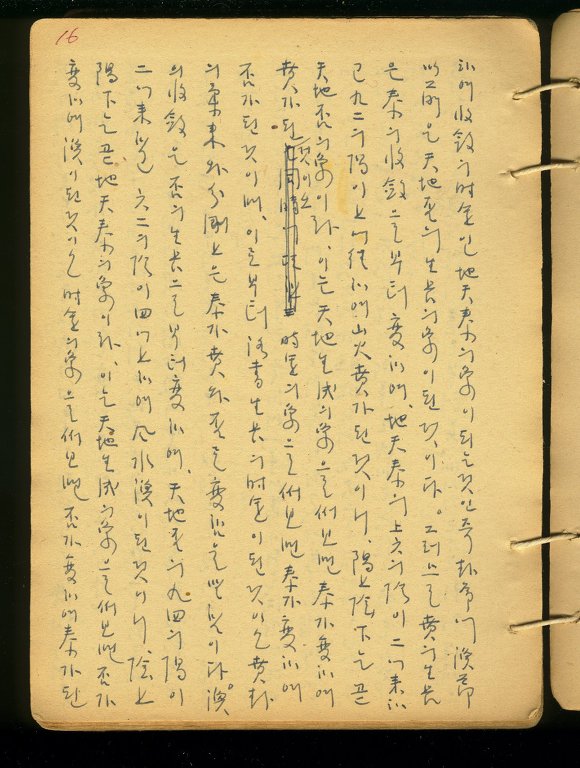 16
하여 收斂의 時運인 地天泰의 象이 되는 것인즉 卦序에 渙節
은 天地否의 生長의 象이 된 것이다。그러므로 賁의 生長
은 泰의 收斂으로부터 變하여、地天泰의 上六의 陰이 二에 來하
고 九二의 陽이 上에 往하여 山火賁가 된 것이니、陽上陰下는 곧
天地否의 象이라、이는 天地生成의 象으로써 보면 泰가 變하여
賁가 된 것이오 時運의 象으로써 보면 泰가 變하여
否가 된 것이며、이로부터 洛書生長의 時運이 된 것이오 賁卦
의 柔來와 分剛上은 泰가 賁와 否로 變함을 말함이다。渙
의 收斂은 否의 生長으로부터 變하여、天地否의 九四의 陽이
二에 來하고 六二의 陰이 四에 上하여 風水渙이 된 것이니、陰上
陽下는 곧 地天泰의 象이라、이는 天地生成의 象으로써 보면 否가
變하여 渙이 된 것이오 時運의 象으로써 보면 否가 變하여 泰가 된